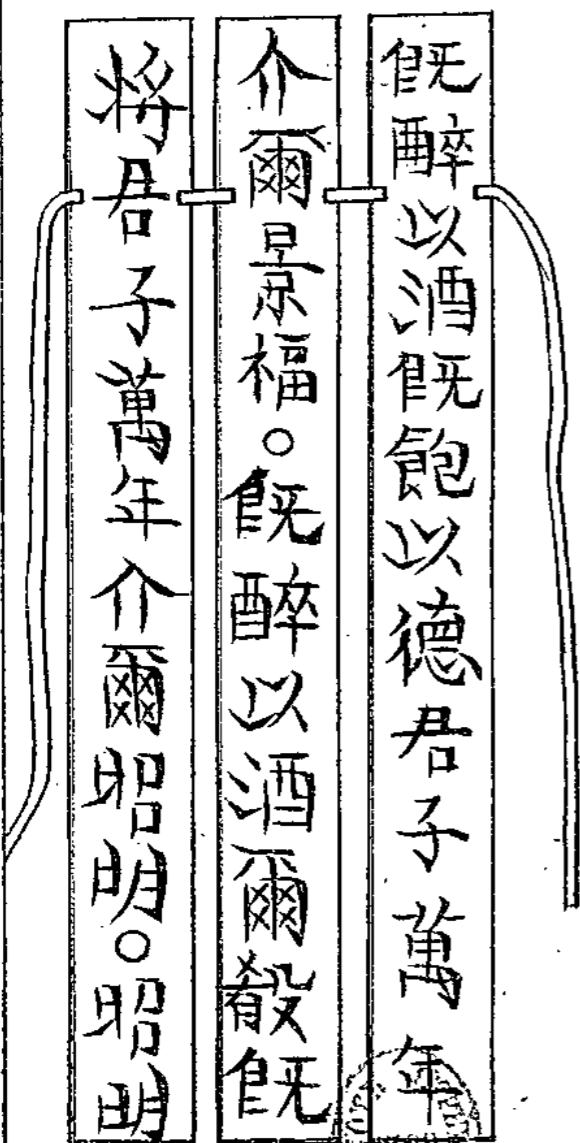 既醉以酒既飽以德君子萬年
介爾景福○既醉以酒爾殽既
將君子萬年介爾昭明○昭明